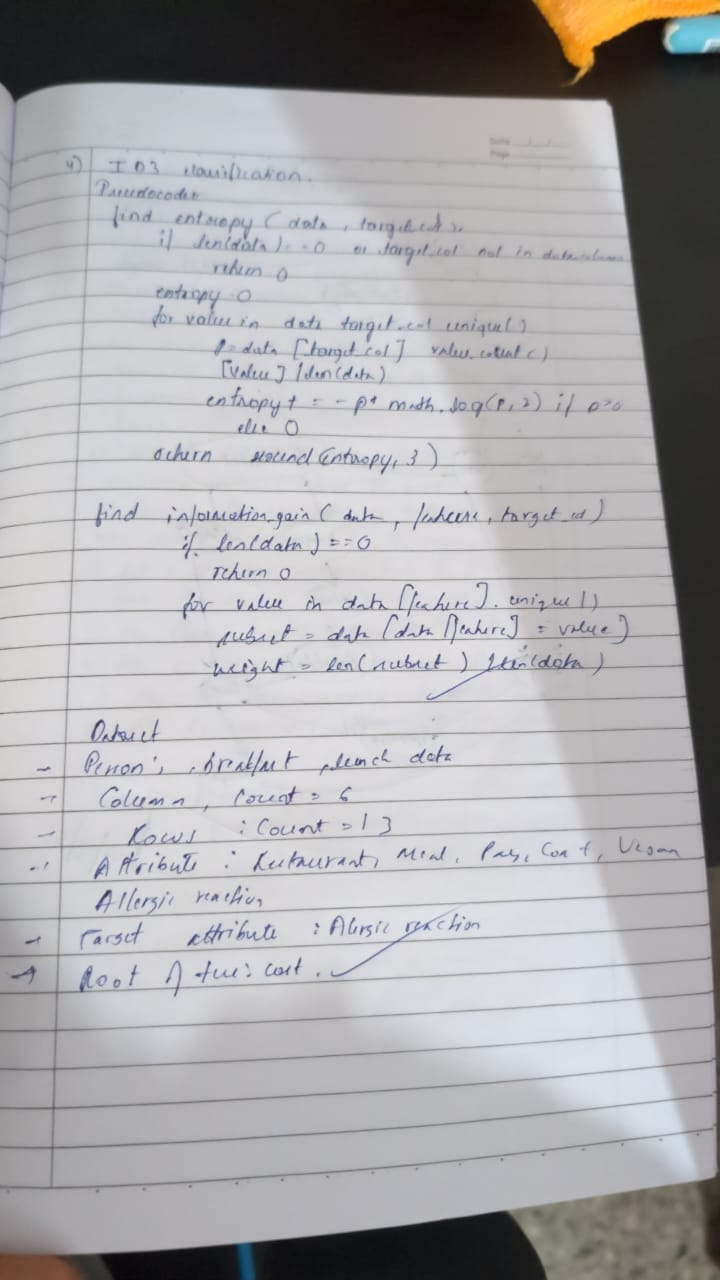 Date
Page
4) ID3 classification.
Pseudocode
find entropy (data, target_col)
if len(data) == 0 or target_col not in data
return 0
entropy 0
for value in data target_col unique()
p = data [target_col] value_count()
[value] / len(data)
entropy + = - p * math.log(p, 2) if p>0
else 0
return round (entropy, 3)
find information_gain (data, feature, target_col)
if len(data) == 0
return 0
for value in data [feature]. unique()
subset = data [data [feature] = value]
weight = len(subset) / len(data)
Dataset
- Person's breakfast, lunch data
- Column, Count = 6
- Rows : Count = 13
- Attribute : Restaurant, Meal, Day, Cost, Vegan
Allergic reaction
- Target attribute : Allergic reaction
→ Root of tree : cost.